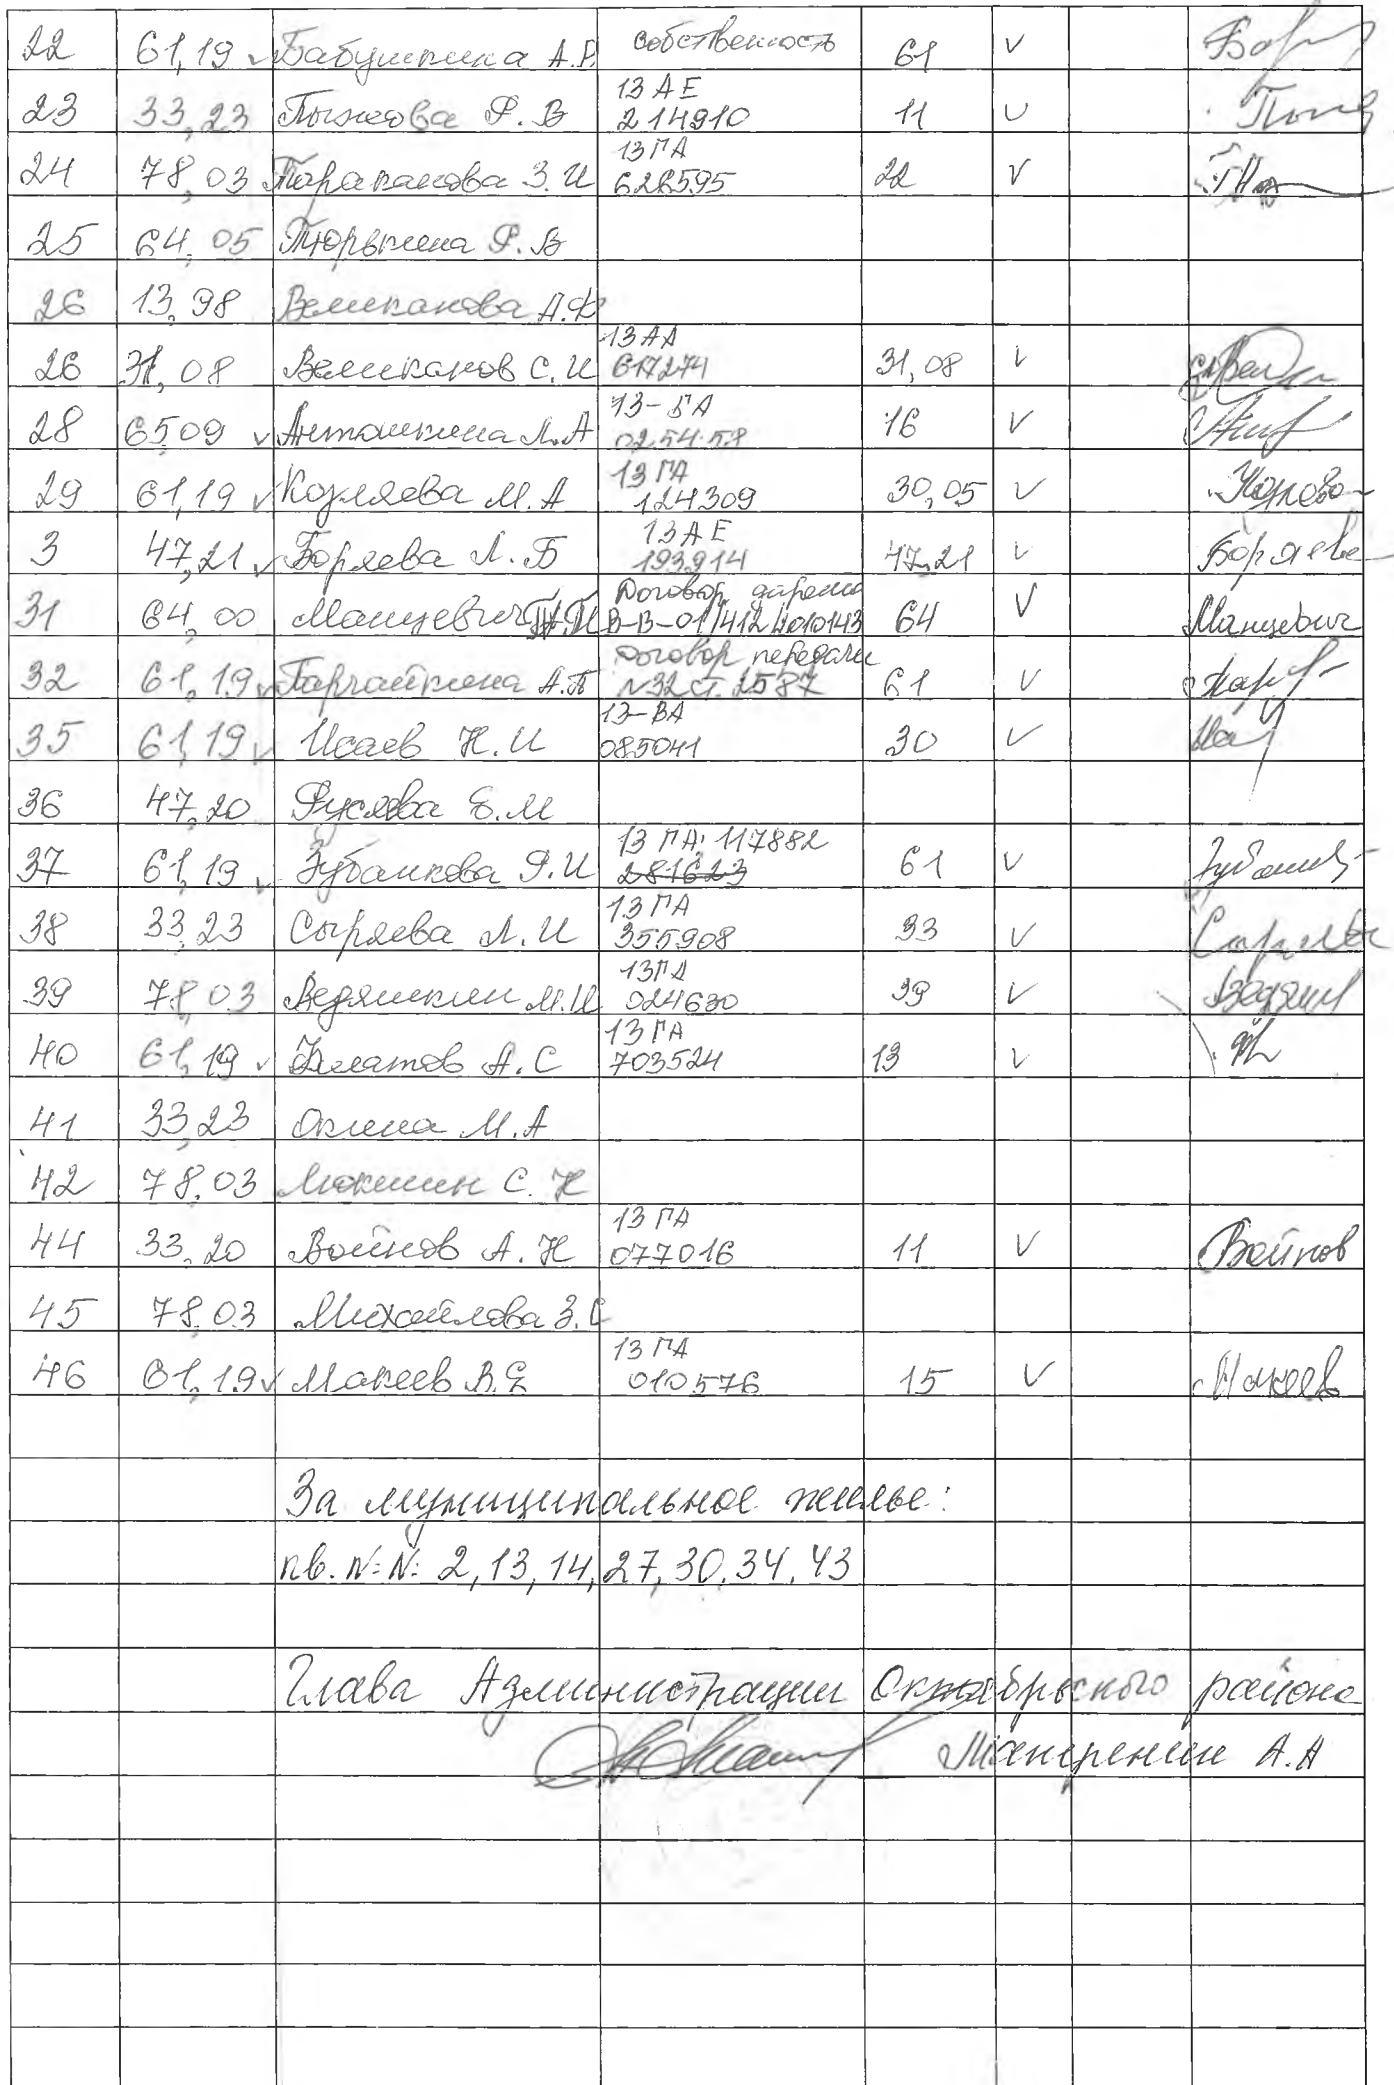 22 61,19 v Бабушкина А.Р. собственность 61 V
23 33,23 Пыжова Р. В 13 АЕ 214910 11 V
24 78,03 Тараканова З. И 13 ГА 628595 22 V
25 64,05 Тюрькина Р. В
26 13,98 Великанова А.Ф
26 31,08 Великанов С. И 13 АА 617274 31,08 V
28 65,09 v Антошкина Л. А 13-БА 025458 16 V
29 61,19 v Козляева М. А 13 ГА 124309 30,05 V
3 47,21 v Боряева Л. Б 13 АЕ 193914 47,21 V Боряева
31 64,00 Манцевич Договор 64 V Манцевич
32 61,19 v А.П Договор передачи N32 ст. 2587 61 V
35 61,19 v Исаев Н. И 13-ВА 085041 30 V
36 47,20 Русяева Е. М
37 61,19 v Зубанкова Р. И 13 ГА 117882 281623 61 V
38 33,23 Сыряева Л. И 13 ГА 355908 33 V
39 78,03 Ведяшкин М. И 13 ГА 024630 39 V
40 61,19 v Филатов А. С 13 ГА 703524 13 V
41 33,23 Окина М. А
42 78,03 Мокшин С. Н
44 33,20 Войнов А. Н 13 ГА 077016 11 V Войнов
45 78,03 Михайлова З. С
46 61,19 v Макеев В. Е 13 ГА 010576 15 V Макеев
За муниципальное жилье:
кв. N: N: 2, 13, 14, 27, 30, 34, 43
Глава Администрации Октябрьского района
А. А